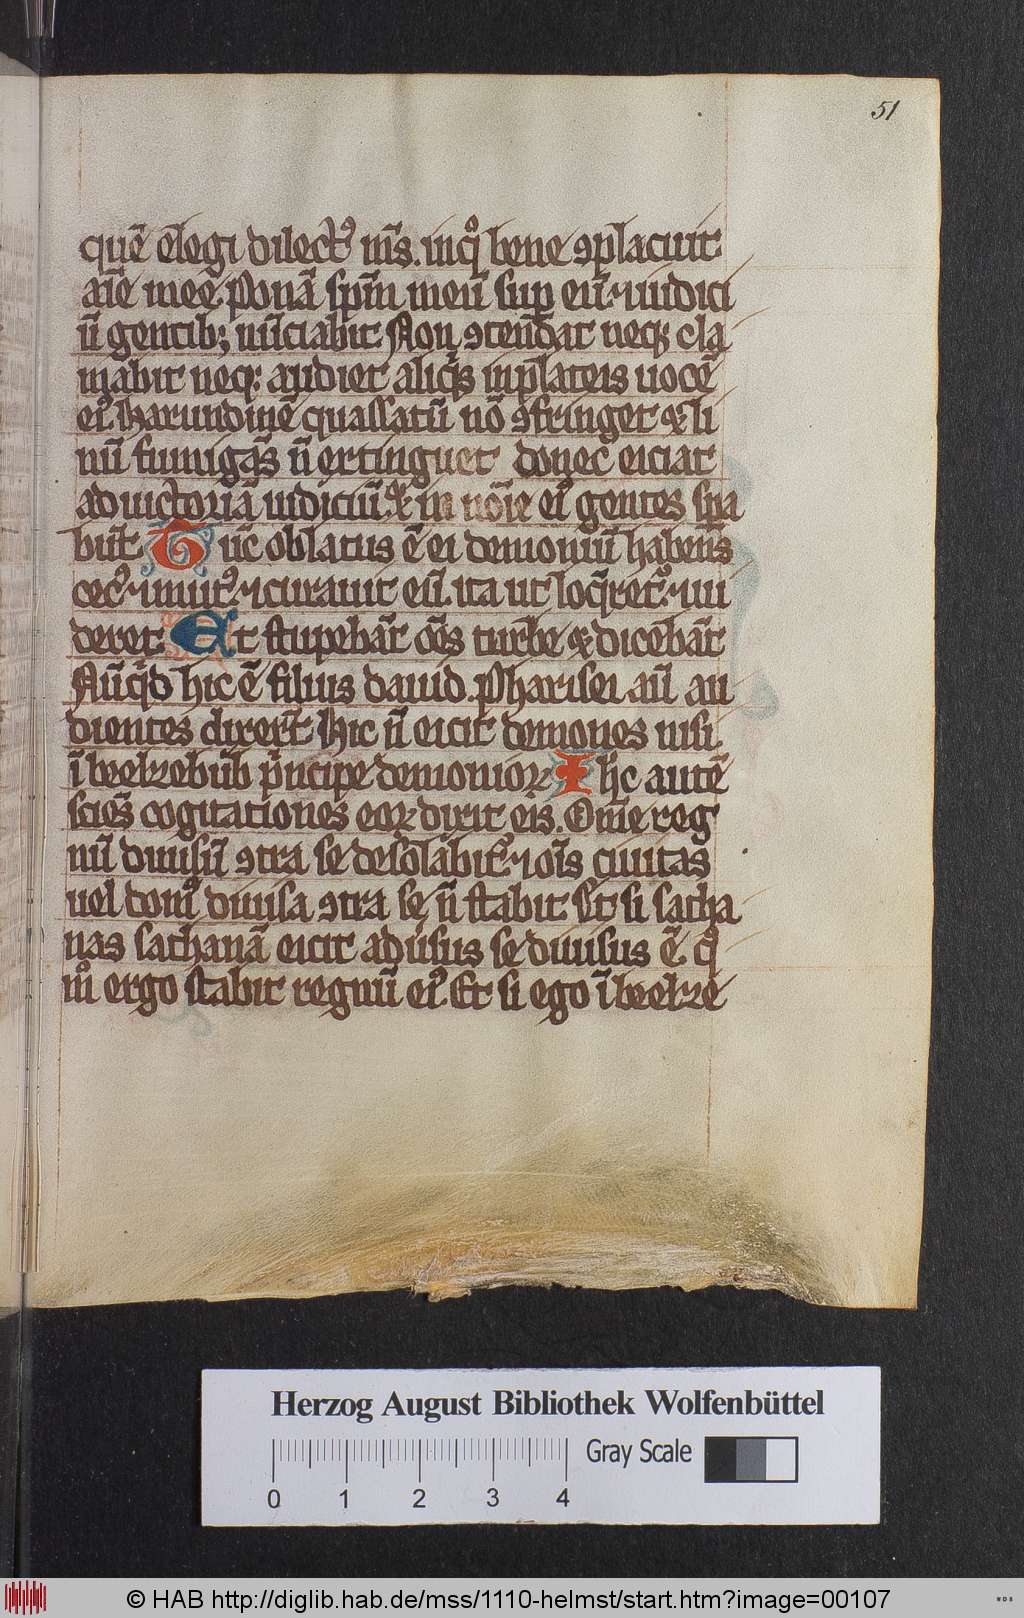 51
quē elegi dilectꝰ mͥs. inqͦ bene ꝯplacuit
aīe mee. Ponā sp̄m meū sup eū. ⁊ iudici
ū gentib; nūciabit. Non ꝯtendat neqꝫ cla
mabit neqꝫ audiet aliqͥs in plateis uocē
eiꝰ. Harundinē quassatū nō ꝯfringet ⁊ li
nū fumigās n̄ extinguet donec eiciat
ad uictoriā iudiciū. ⁊ in noīe eiꝰ gentes spa
būt. Tūc oblatus ē ei demoniū habens
cecꝰ ⁊ mutꝰ. ⁊ curauit eū. ita ut loqͣretꝰ. ⁊ ui
deret. Et stupebāt om̄s turbe ⁊ dicebāt
Nūqͥd hic ē filius dauid. Pharisei aū au
dientes dixerūt. Hic n̄ eicit demones nisi
ī beelzebub pͥncipe demonioꝝ. Ihc autē
sciēs cogitationes eoꝝ dixit eis. Om̄e reg
nū diuisū ꝯtra se desolabitꝰ. ⁊ oīs ciuitas
uel domꝰ diuisa ꝯtra se n̄ stabit. Et si satha
nas sathanā eicit aduſus se diuisus ē. qͦ
mͦ ergo stabit regnū eiꝰ. Et si ego ī beelze
Herzog August Bibliothek Wolfenbüttel
Gray Scale
0 1 2 3 4
© HAB http://diglib.hab.de/mss/1110-helmst/start.htm?image=00107